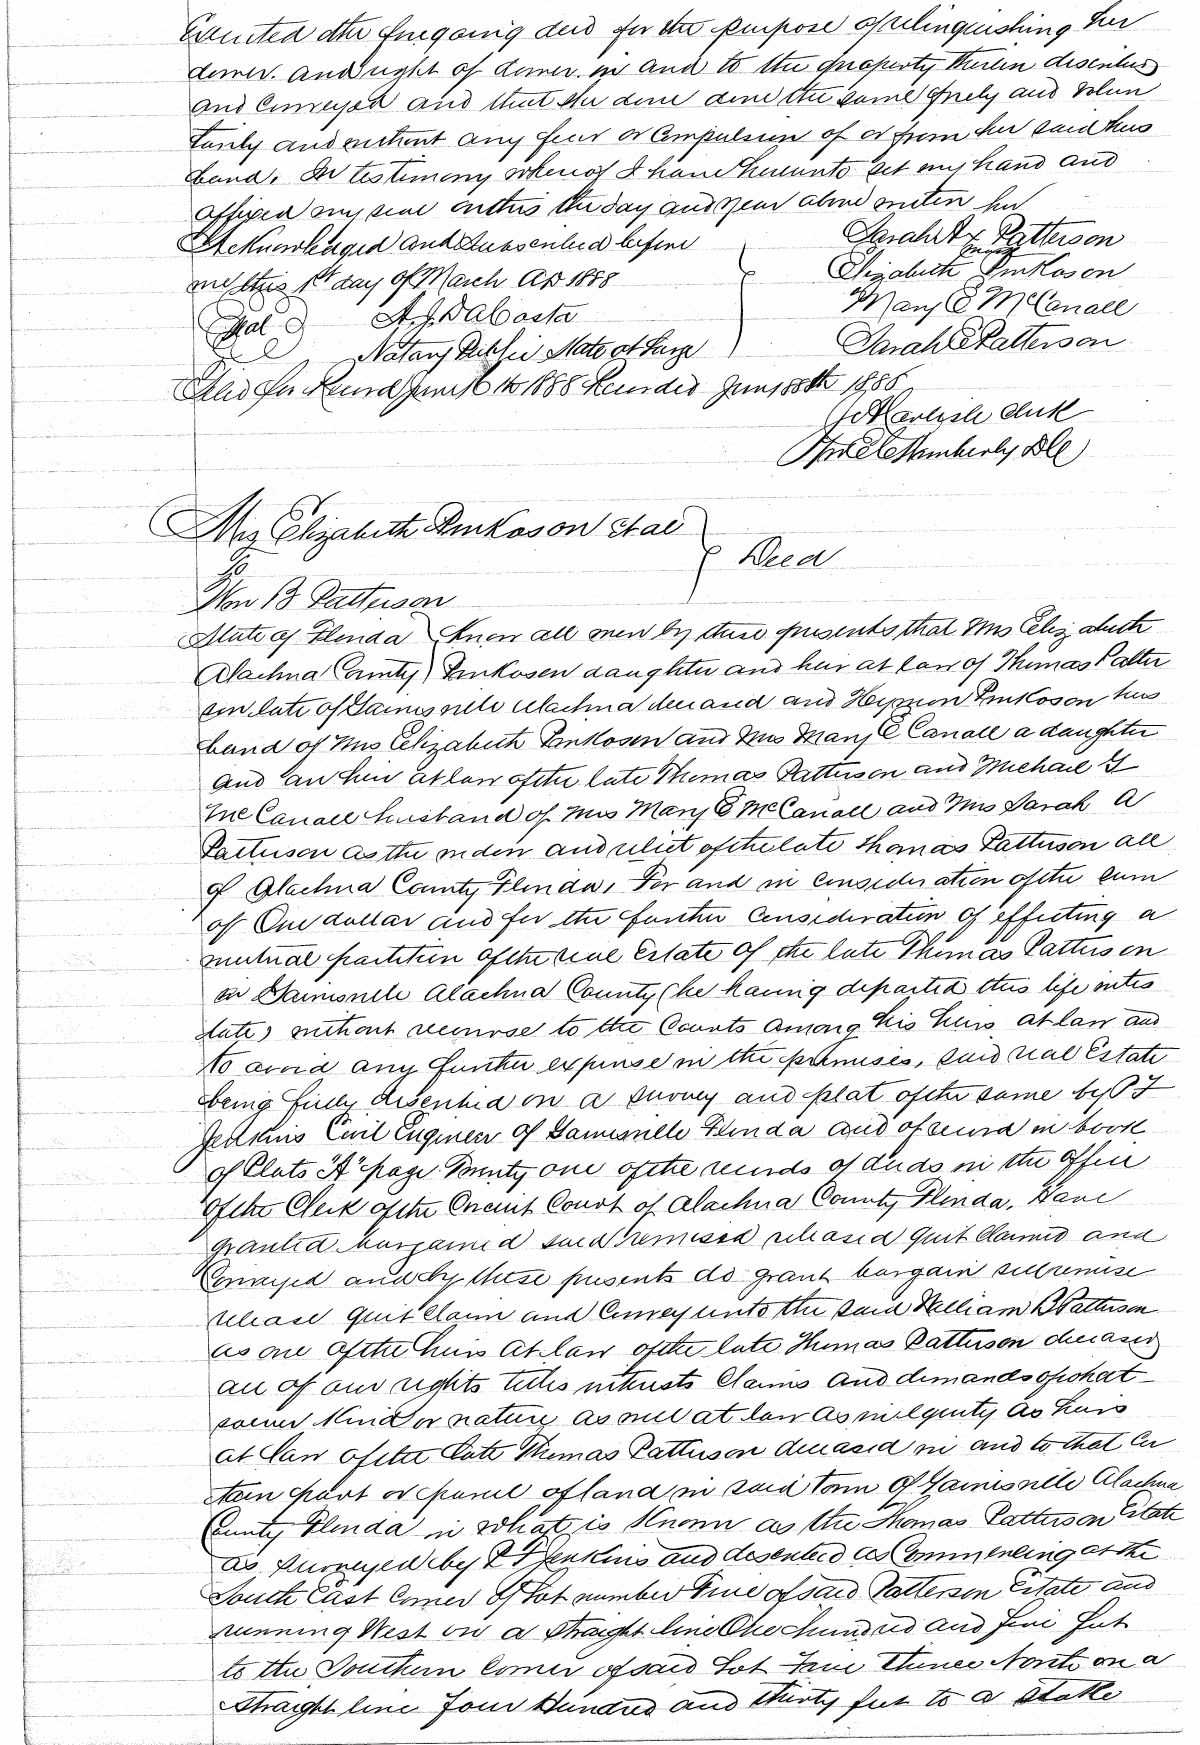 Executed the foregoing deed for the purpose of relinquishing her
dower. and right of dower. in and to the property therein described
and Conveyed and that she done done the same freely and Volun
tarily and without any fear or Compulsion of or from her said hus
band. In testimony whereof I have hereunto set my hand and
affixed my seal on this the day and year above written her
Acknowledged and Subscribed before Sarah A x Patterson
mark
me this 1st day of March AD 1888 Elizabeth Pinkoson
Seal A. J. DaCosta Mary E McCanall
Notary Public State at Large Sarah E Patterson
Filed for Record June 16th 1888 Recorded June 18th 1888
Clerk
Wimberly DC
Mrs Elizabeth Pinkoson et al
To Deed
Wm B Patterson
State of Florida Know all men by these presents that Mrs Elizabeth
Alachua County Pinkosen daughter and heir at law of Thomas Patter
son late of Gainesville Alachua deceased and Hyman Pinkoson hus
band of Mrs Elizabeth Pinkosen and Mrs Mary E Canall a daughter
and an heir at law of the late Thomas Patterson and Michael G
McCanall husband of Mrs Mary E McCanall and Mrs Sarah A
Patterson as the widow and relict of the late Thomas Patterson all
of Alachua County Florida, For and in consideration of the sum
of One dollar and for the further Consideration of effecting a
mutual partition of the real Estate of the late Thomas Patterson
in Gainesville Alachua County (he having departed this life intes
tate) without recourse to the Courts among his heirs at law and
to avoid any further expense in the premises, said real Estate
being fully described on a survey and plat of the same by P F
Jenkins Civil Engineer of Gainesville Florida and of record in book
of Plats "A" page Twenty one of the records of deeds in the office
of the Clerk of the Circuit Court of Alachua County Florida. Have
granted bargained sold remised released quit Claimed and
Conveyed and by these presents do grant bargain sell remise
release quit Claim and Convey unto the said William B Patterson
as one of the heirs at law of the late Thomas Patterson deceased
all of our rights titles interests Claims and demands of what
soever kind or nature as well at law as in equity as heirs
at law of the late Thomas Patterson deceased in and to that Cer
tain part or parcel of land in said town of Gainesville Alachua
County Florida in what is known as the Thomas Patterson Estate
as surveyed by P F Jenkins and described as Commencing at the
South East Corner of Lot number Five of said Patterson Estate and
running West on a straight line One hundred and five feet
to the Southern Corner of said Lot Five thence North on a
straight line Four Hundred and thirty feet to a stake